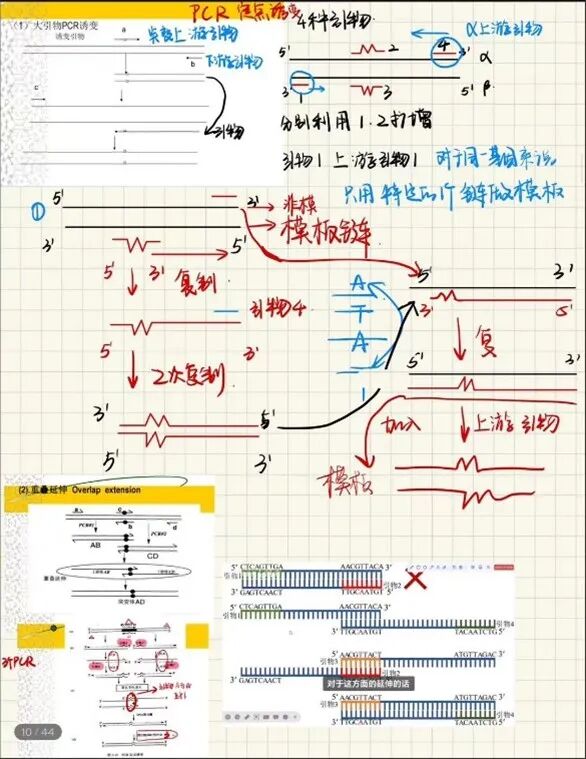 PCR 定点诱变
（1）大引物PCR诱变
诱变引物
a
常规上游引物
b
下游引物
c
引物
4种引物
α上游引物
5'
2
4
α
3'
1
3
5'
β
分别利用1.2扩增
引物1 上游引物1
对于同一基因来说，
只用特定的1个链做模板
①
5'
3'
非模
模板链
3'
5'
5'
3'
复制
引物4
5'
3'
2次复制
3'
5'
5'
3'
A
T
A
1
5'
3'
3'
5'
复
5'
3'
加入
上游引物
模板
(2).重叠延伸 Overlap extension
a
b
d
PCR#1
PCR#2
AB
CD
重叠延伸
突变体AD
3次PCR
5' CTCAGTTGA
AACGTTACA 3'
引物1
引物2
3' GAGTCAACT
TTGCAATGT 5'
5' CTCAGTTGA
引物1
引物4
TTGCAATGT
TACAATCTG 5'
AACGTTACT
ATGTTAGAC 3'
引物3
引物2
3' GAGTCAACT
对于这方面的延伸的话
AACGTTACT
ATGTTAGAC 3'
引物3
引物4
TACAATCTG 5'
10 / 44